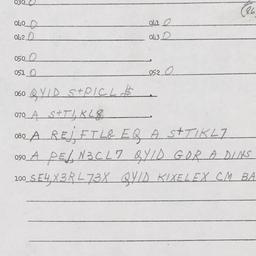 030 0
040 0 041 0
042 0 043 0
050 0
051 0 052 0
060 QYID S+PICL
070 A S+TI,KL8
080 A REJ,FTL& EQ A S+TIKL7
090 A PEJ,N3CL7 QYID GOR A DINS
100 SE4,X3RL73X QYID KIXELEX CM BA